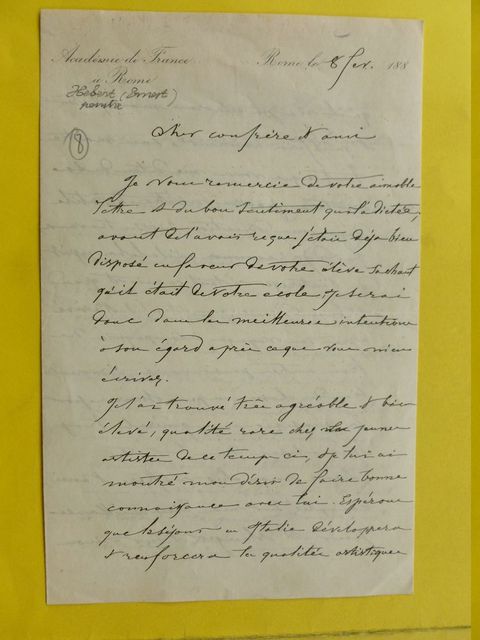 Académie de France
à Rome
Rome le 8 fev. 188
Hébert (Ernest)
peintre
8
Cher confrère & ami
Je vous remercie de votre aimable
lettre & du bon sentiment qui l'a dictée,
avant de l'avoir reçue j'étais déjà bien
disposé en faveur de votre élève sachant
qu'il était de votre école & je serai
donc dans les meilleures intentions
à son égard après ce que vous m'en
écrivez.
Je l'ai trouvé très agréable & bien
élevé, qualité rare chez les jeunes
artistes de ce temps ci, & je lui ai
montré mon désir de faire bonne
connaissance avec lui. Espérons
que le séjour en Italie développera
& renforcera les qualités artistiques